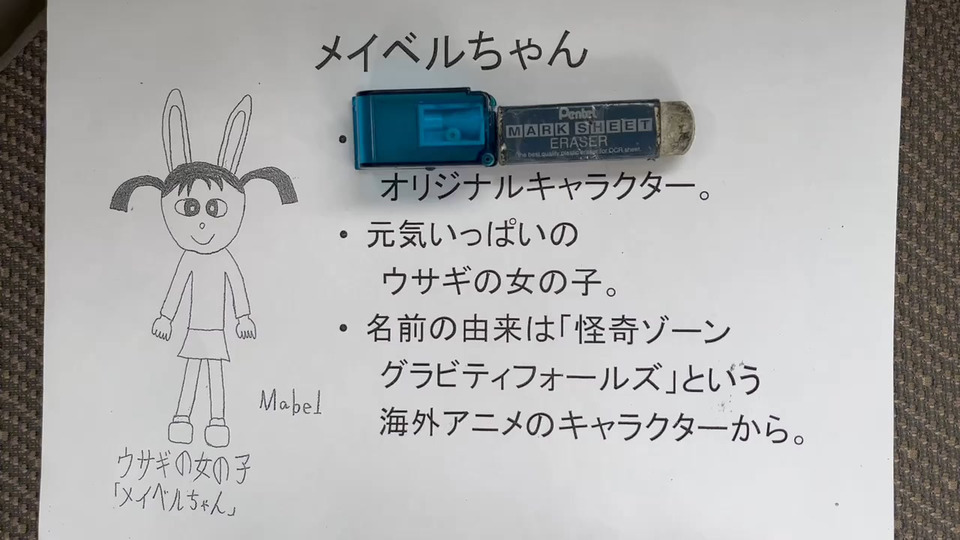 メイベルちゃん
Pentel
MARK SHEET
ERASER
The best quality plastic eraser for OCR sheet.
オリジナルキャラクター。
• 元気いっぱいの
ウサギの女の子。
• 名前の由来は「怪奇ゾーン
グラビティフォールズ」という
海外アニメのキャラクターから。
Mabel
ウサギの女の子
「メイベルちゃん」